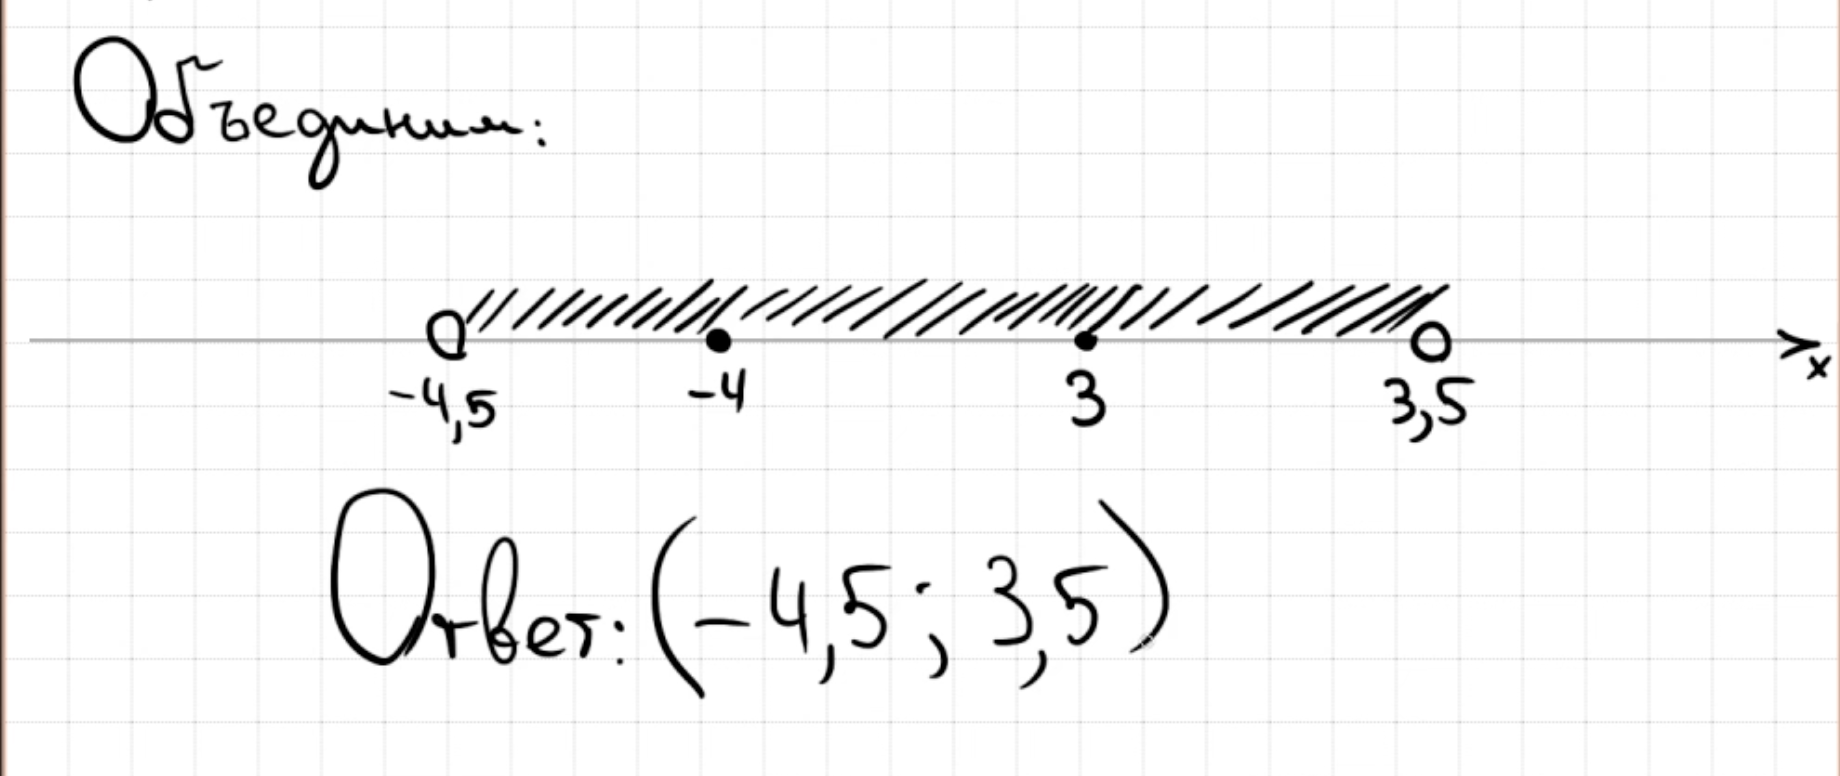 Объединим:
-4,5 -4 3 3,5 x
Ответ: (-4,5; 3,5)